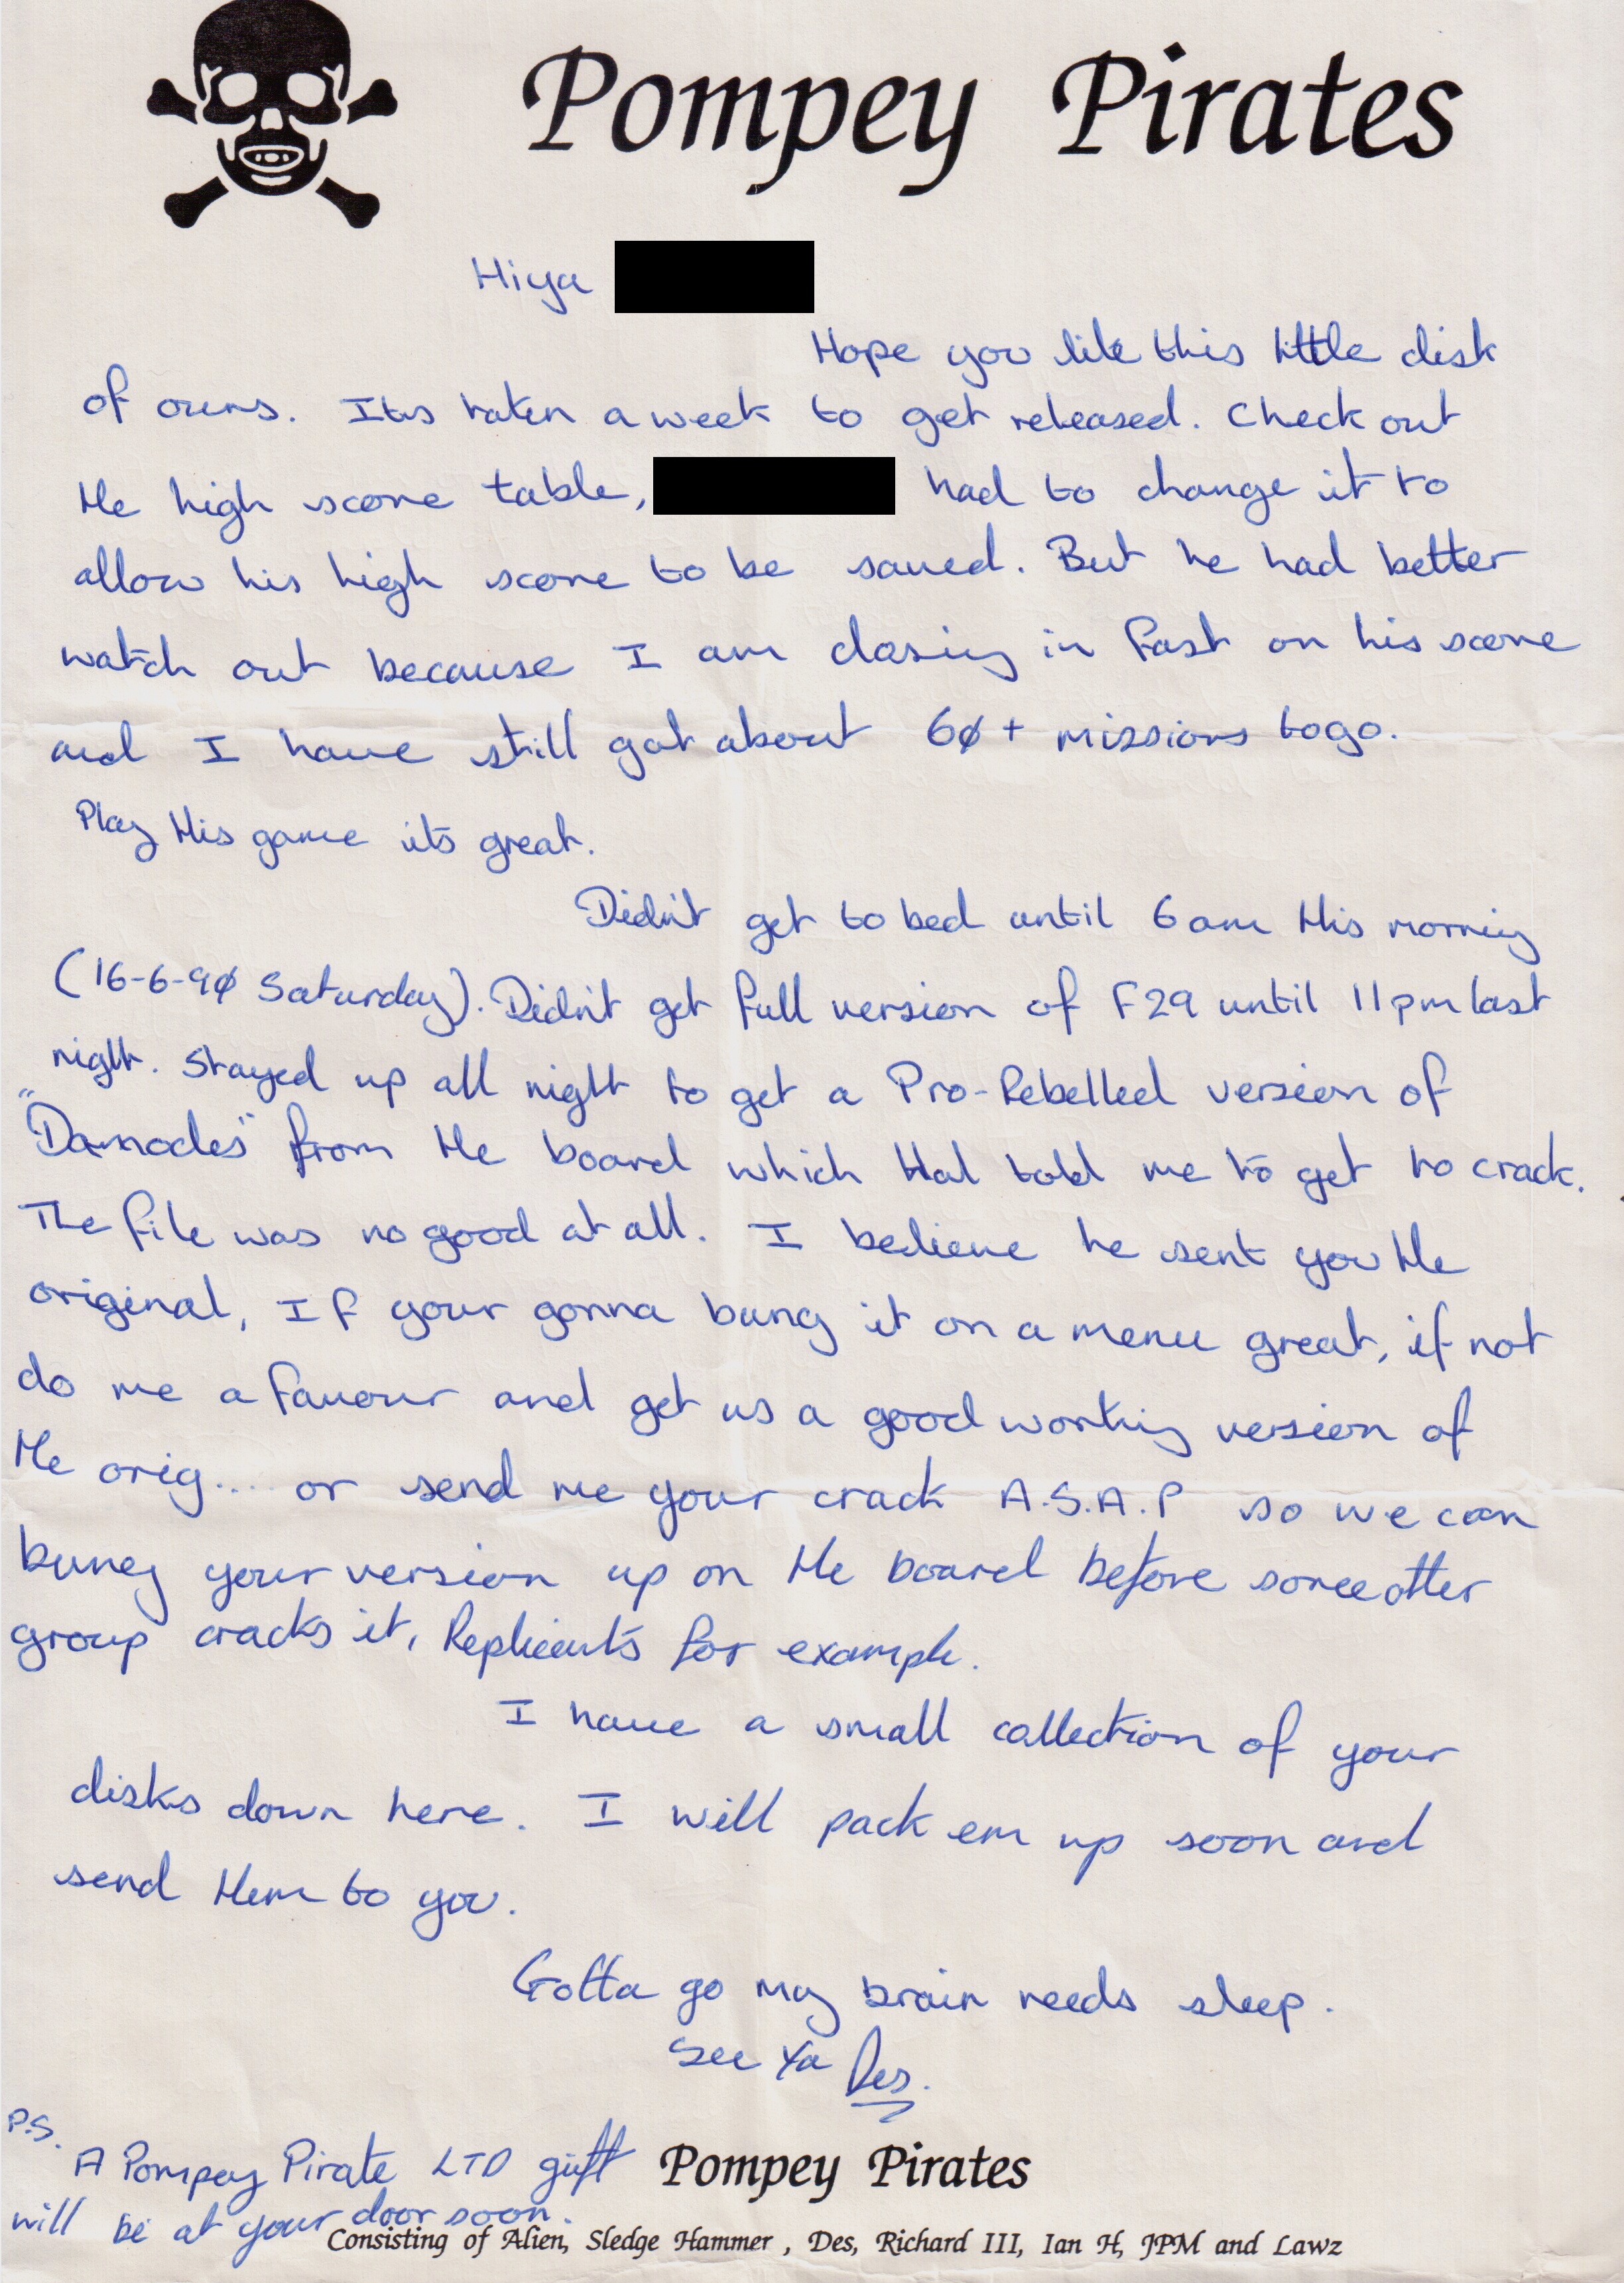 Pompey Pirates
Hiya
Hope you like this little disk
of ours. Its taken a week to get released. Check out
the high score table, had to change it to
allow his high score to be saved. But he had better
watch out because I am closing in fast on his score
and I have still got about 60+ missions to go.
Play this game its great.
Didn't get to bed until 6am this morning
(16-6-90 Saturday). Didn't get full version of F29 until 11pm last
night. Stayed up all night to get a Pro-Rebelled version of
"Damocles" from the board which Hal told me to get to crack.
The file was no good at all. I believe he sent you the
original, If your gonna bung it on a menu great, if not
do me a favour and get us a good working version of
the orig.... or send me your crack A.S.A.P so we can
bung your version up on the board before some other
group cracks it, Replicants for example.
I have a small collection of your
disks down here. I will pack em up soon and
send them to you.
Gotta go my brain needs sleep.
See Ya Des.
P.S.
A Pompey Pirate LTD gift
will be at your door soon.
Pompey Pirates
Consisting of Alien, Sledge Hammer , Des, Richard III, Ian H, JPM and Lawz